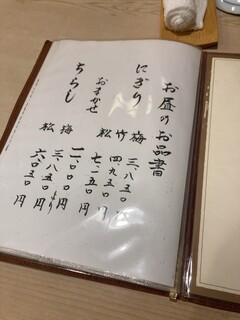 お昼のお品書
にぎり
梅 三、八五〇円
竹 四、九五〇円
松 七、一五〇円
おまかせ 一一、〇〇〇円より
ちらし
梅 三、八五〇円
松 六、〇五〇円